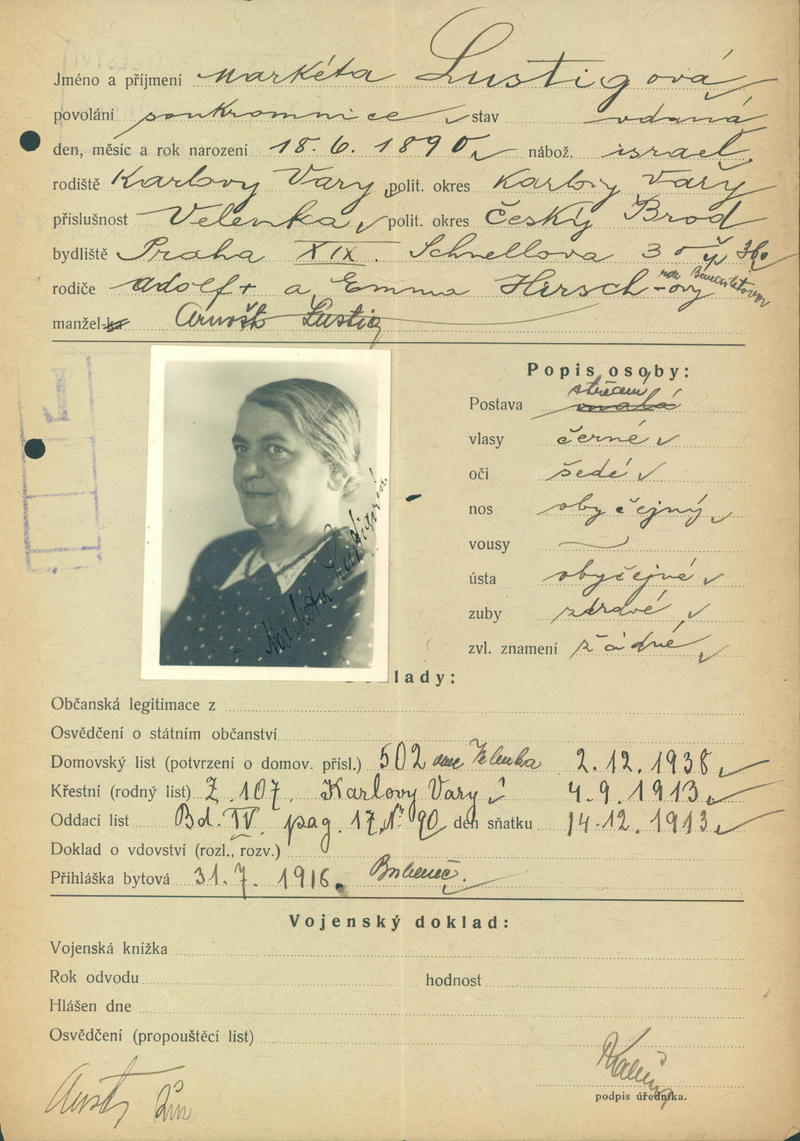 Jméno a příjmení Markéta Lustigová
povolání soukromnice stav vdaná
den, měsíc a rok narození 18. 6. 1890 nábož. israel.
rodiště Karlovy Vary polit. okres Karlovy Vary
příslušnost Velenka polit. okres Český Brod
bydliště Praha XIX. Schnellova 3
rodiče Adolf + a Emma Hirsch-ovy roz.
manžel-ka Arnošt Lustig
Popis osoby:
střední
Postava malá
vlasy černé
oči šedé
nos obyčejný
vousy
ústa obyčejné
zuby zdravé
zvl. znamení žádné
Markéta Lustigová
lady:
Občanská legitimace z
Osvědčení o státním občanství
Domovský list (potvrzení o domov. přísl.) 502 Velenka 2. 12. 1938
Křestní (rodný list) Z. 107. Karlovy Vary 4. 9. 1913
Oddací list Bd. IV. pag. 17. Nr 90 den sňatku 14. 12. 1913
Doklad o vdovství (rozl., rozv.)
Přihláška bytová 31. 7. 1916. Bubeneč.
Vojenský doklad:
Vojenská knížka
Rok odvodu hodnost
Hlášen dne
Osvědčení (propouštěcí list)
podpis úředníka.